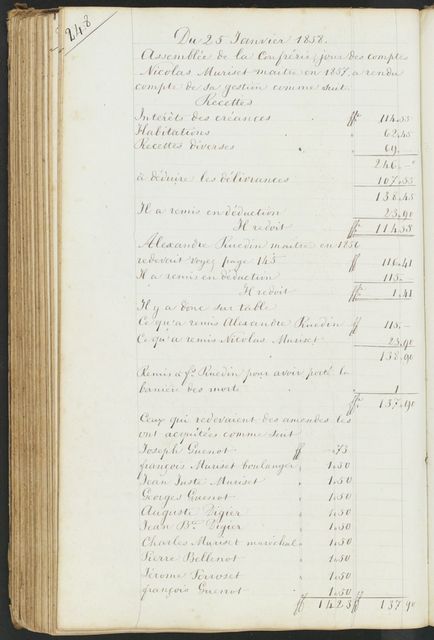 248
Du 25 Janvier 1858.
Assemblée de la Confrérie, jour des comptes
Nicolas Muriset maitre en 1857 a rendu
compte de sa gestion comme suit.
Recettes
Intérêts des créances ff 114.55
Habitations 62.45
Recettes diverses 69.-
246.-
à déduire les délivrances 107.55
138.45
Il a remis en déduction 23.90
Il redoit ff 114.55
Alexandre Ruedin maitre en 1856
redevait voyez page 145 ff 116.41
Il a remis en déduction 115.-
Il redoit ff 1.41
Il y a donc sur table
Ce qu'a remis Alexandre Ruedin ff 115.-
Ce qu'a remis Nicolas Muriset 23.90
138.90
Remis à Ruedin pour avoir porté la
banière des morts 1
ff 137.90
Ceux qui redevaient des amendes les
ont acquitées comme suit
Joseph Guenot ff -.73
françois Muriset boulanger 1.50
Jean Juste Muriset 1.50
Georges Guenot 1.50
Auguste Vigier 1.50
Jean Bte Vigier 1.50
Charles Muriset maréchal 1.50
Pierre Bellenot 1.50
Jérome Perroset 1.50
françois Guenot 1.50
ff 14 23 ff 137 90